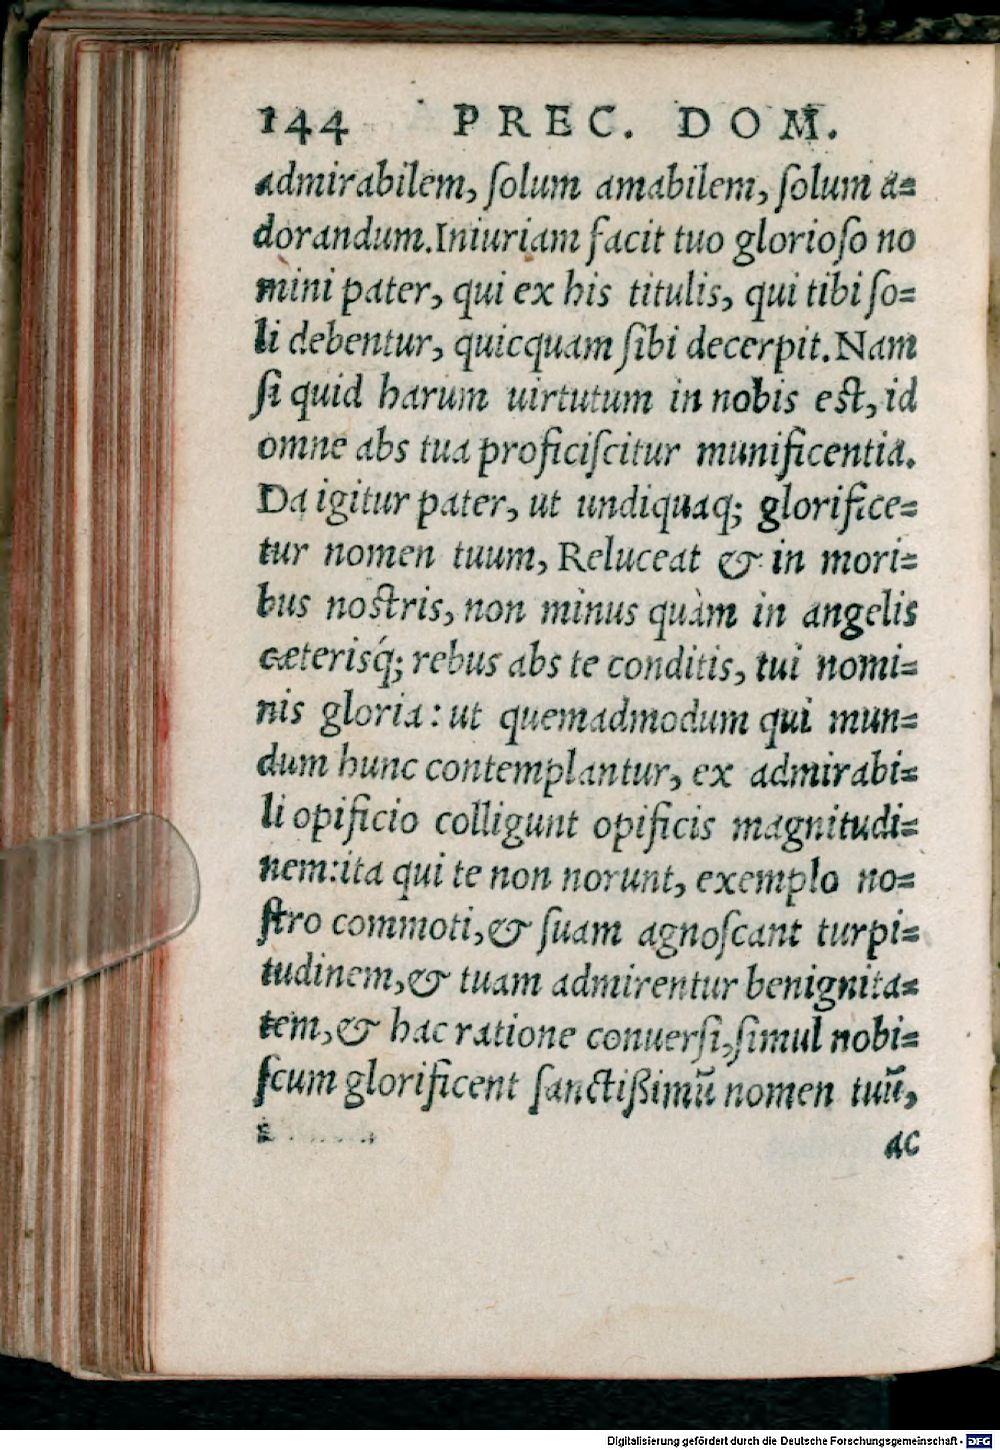 144 PREC. DOM.
admirabilem, ſolum amabilem, ſolum a=
dorandum.Iniuriam facit tuo glorioſo no
mini pater, qui ex his titulis, qui tibi ſo=
li debentur, quicquam ſibi decerpit.Nam
ſi quid harum uirtutum in nobis est, id
omne abs tua proficiſcitur munificentia.
Da igitur pater, ut undiquaq; glorifice=
tur nomen tuum, Reluceat & in mori=
bus nostris, non minus quàm in angelis
cæterisq́; rebus abs te conditis, tui nomi=
nis gloria: ut quemadmodum qui mun=
dum hunc contemplantur, ex admirabi=
li opificio colligunt opificis magnitudi=
nem:ita qui te non norunt, exemplo no=
ſtro commoti,& ſuam agnoſcant turpi=
tudinem,& tuam admirentur benignita=
tem,& hac ratione conuerſi,ſimul nobi=
ſcum glorificent ſanctißimū nomen tuū,
ac
Digitalisierung gefördert durch die Deutsche Forschungsgemeinschaft - DFG